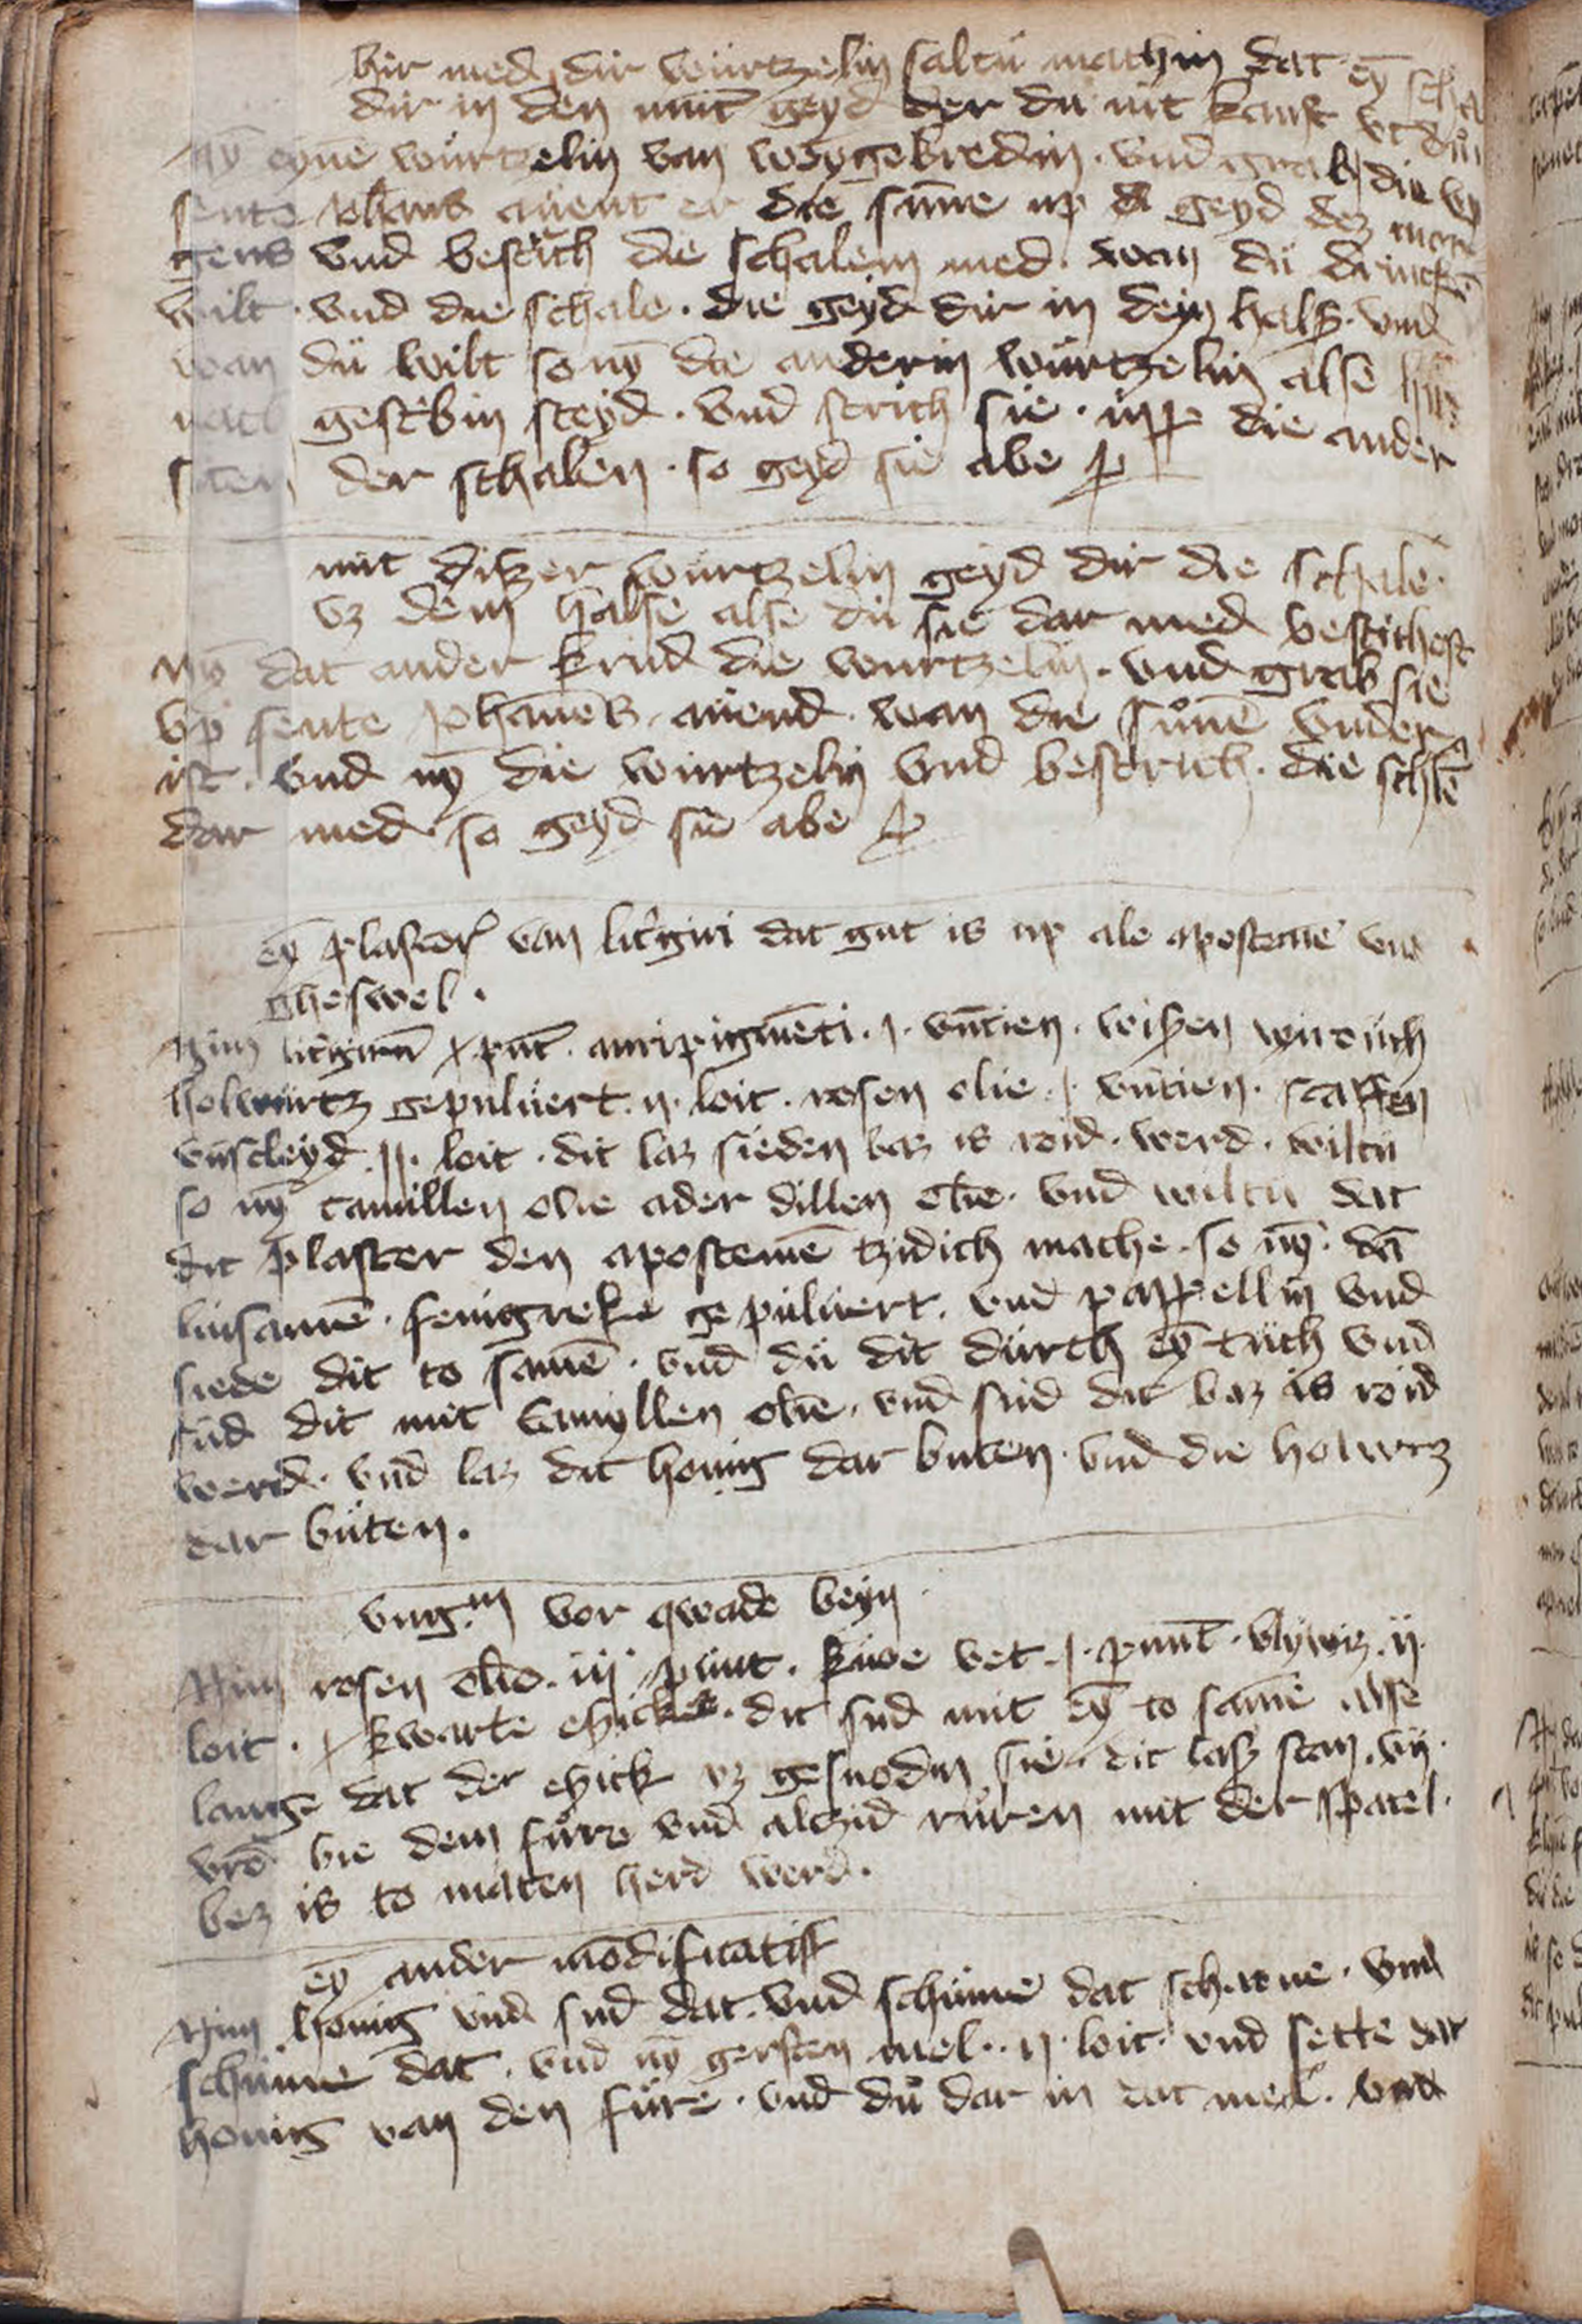 hir med dir wurtzelin saltu mathin dat eȳ scha
dir in den mūt geyd der du nit kanst vt dun
nȳ eyne wurtzelin van weygebredin · vnd grab die vp
sente Joh̄ans auent er die sunne up geyd dez mor
gens vnd bestrich die schalem med · wan du drincken
wilt · vnd die schale · die geyd dir in dein hals · vnd
wan du wilt so nȳ die anderin wurtzelin alse hir
nach gescrebin steyd · vnd strich sie · up die ander
siten der schalen · so geyd sie abe
mit disser wurtzelin geyd dir die schale
vz dem halse alse du sie dar med bestrichest
Nȳ dat ander krud die wurtzelin · vnd grab sie
vp sente Johannes auend · wan die sunne vnder
ist · vnd nȳ die wurtzelin vnd bestrich · die schalē
dar med · so geyd sie abe
eȳ plaster van litergiri dat gut is up ale aposteme vnd
gheswel ·
Nim litergirū j punt · auripigmēti · j · vntien · wissen wirouch
holwurtz gepuluert · ij · loit · rosen olie · j · vntien · scaffen
vnscleyd · ij · loit · dit laz sieden baz is roid · werd · wiltu
so nȳ camillen olie ader dillen olie · vnd wiltu dat
dit plaster den apostemē tzidich mache · so nȳ · dā
linsamē · fenigreke gepuluert · vnd pappellin vnd
siede dit to samē · vnd du dit durch eȳ tuch vnd
sud dit mit Camyllen olie · vnd sud dit baz is roid
werd · vnd laz dit honig dar buten · vnd die holwrz
dar buten ·
vng.m vor qwade beyn
Nim rosen olie · iij · punt · kuoe vet · j · punt · blywiz · ij ·
loit · j kwarte eszick · dit sud mit eȳ to samē alse
lange dat der eszick vz gesnodin sie · dit lasz stan · vij ·
vrē bie dem fure vnd altzid ruren mit der spatel ·
bez is to maten herd werd ·
eȳ ander mōdificatiff
Nim honig vnd sud dat · vnd schume dat schone · vnd
schume dat · vnd nȳ gersten mel · ij · loit · vnd sette dat
honig van den fure · vnd du dar in dat mel · vnd